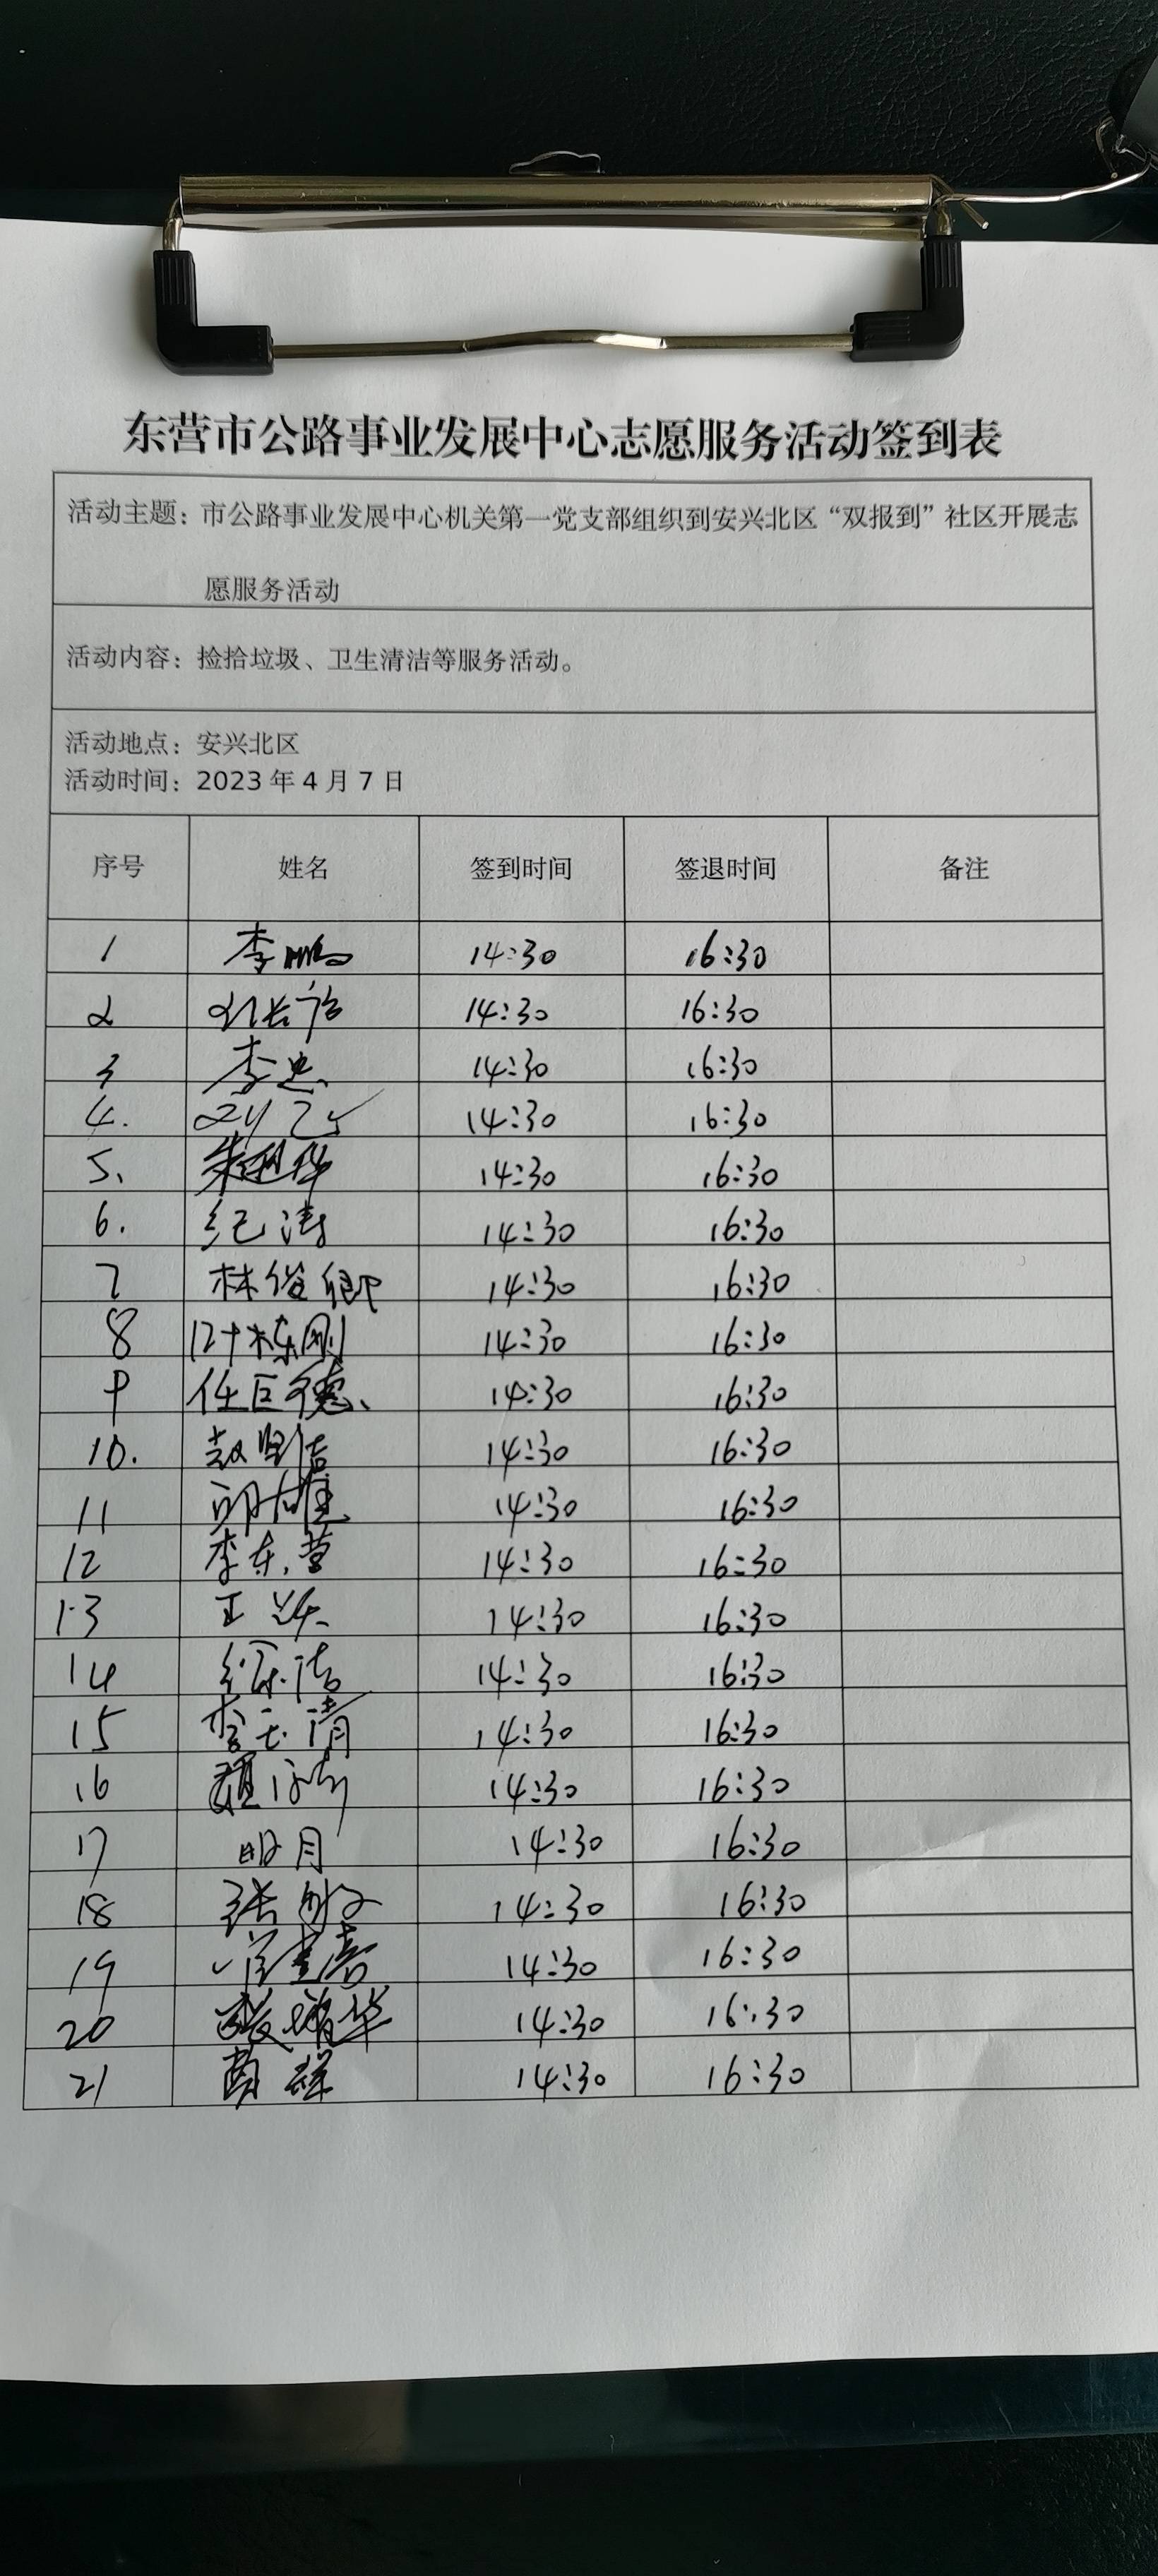 东营市公路事业发展中心志愿服务活动签到表
活动主题：市公路事业发展中心机关第一党支部组织到安兴北区“双报到”社区开展志
愿服务活动
活动内容：捡拾垃圾、卫生清洁等服务活动。
活动地点：安兴北区
活动时间：2023 年 4 月 7 日
序号 姓名 签到时间 签退时间 备注
1 李鹏 14:30 16:30
2 14:30 16:30
3 李忠 14:30 16:30
4. 14:30 16:30
5、 14:30 16:30
6. 纪涛 14:30 16:30
7 林俊卿 14:30 16:30
8 许栋刚 14:30 16:30
9 任巨德 14:30 16:30
10. 14:30 16:30
11 14:30 16:30
12 李东营 14:30 16:30
13 14:30 16:30
14 14:30 16:30
15 李玉清 14:30 16:30
16 14:30 16:30
17 明月 14:30 16:30
18 张敏 14:30 16:30
19 14:30 16:30
20 14:30 16:30
21 14:30 16:30